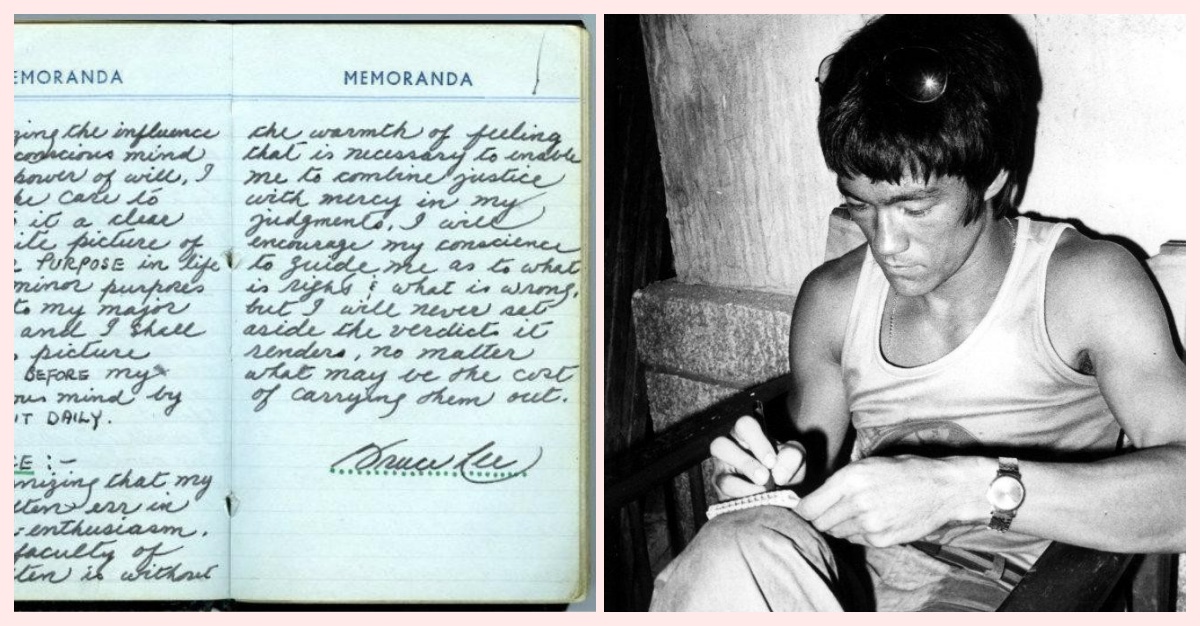 EMORANDA
ging the influence
conscious mind
power of will, I
ke care to
it a clear
ite picture of
PURPOSE in life
minor purposes
to my major
and I shall
picture
BEFORE my
ous mind by
IT DAILY.
CE :-
nizing that my
ten err in
-enthusiasm.
faculty of
ten is without
MEMORANDA
the warmth of feeling
that is necessary to enable
me to combine justice
with mercy in my
judgments, I will
encourage my conscience
to guide me as to what
is right & what is wrong,
but I will never set
aside the verdict it
renders, no matter
what may be the cost
of carrying them out.
Bruce Lee